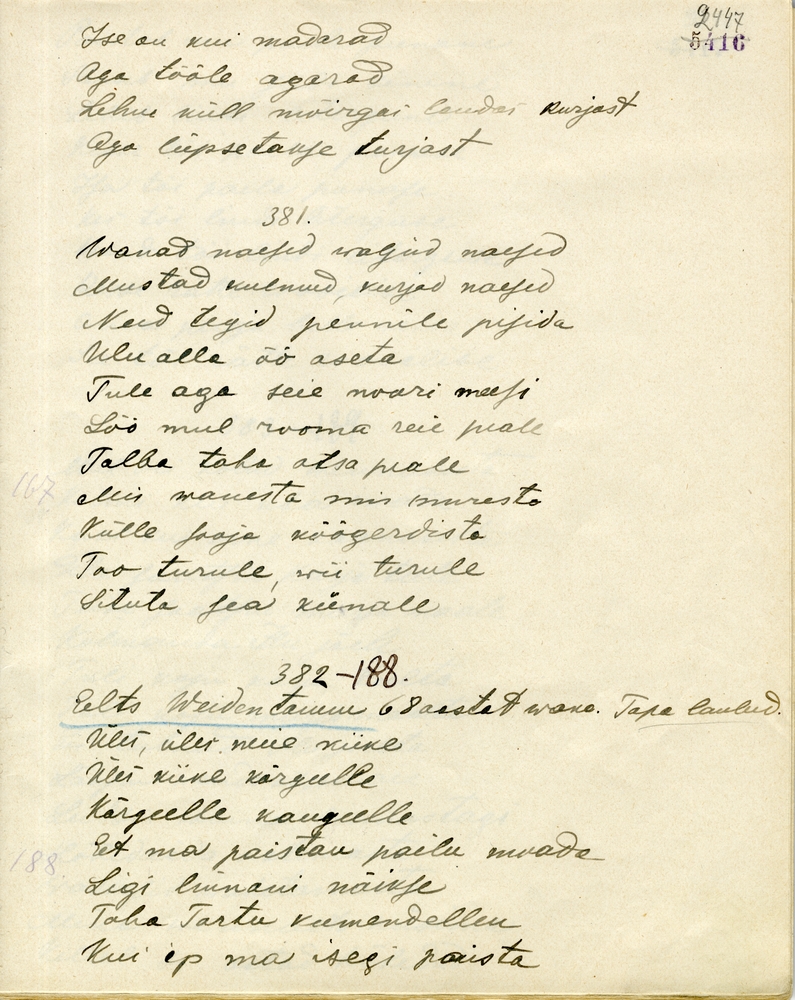 2447
5416
Ise on kui madarad
Aga tööle agarad
Lehm küll möirgas laudas kurjast
Aga lüpsetakse turjast
381.
Wanad naesed waljud naesed
Mustad kulmud, kurjad naesed
Need tegid pennile pisida
Ulu alla öö aseta
Tule aga seie noori meesi
Löö mul rooma reie peale
Talba taha otsa peale
167
Mis wanesta mis muresta
Külle sooja köögerdista
Too turule, wii turule
Situta sea künale
382-188.
Eelts Weidentamm 68 aastat wana. Tapa laulud.
Üles, üles meie kiike
Üles kiike kõrgeelle
Kõrgeelle kaugeelle
Et ma paistan pailu maada
188.
Ligi linnani näikse
Taha Tartu kumendellen
Kui ep ma isegi paista